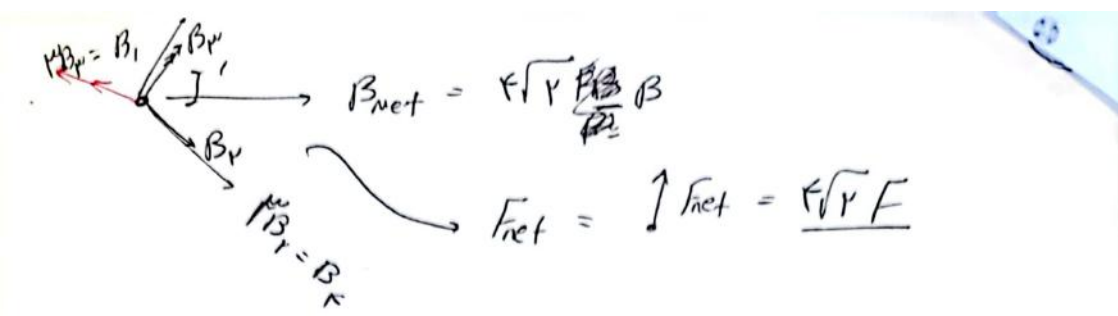 ۳B۳ = B۱
B۳
B۲
۳B۲ = B۴
Bnet = ۴√۲ B
Fnet = ↑ Fnet = ۴√۲ F